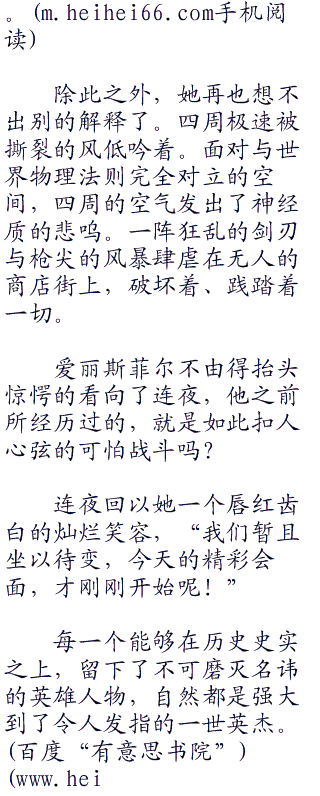 。(m.heihei66.com手机阅
读)
除此之外，她再也想不
出别的解释了。四周极速被
撕裂的风低吟着。面对与世
界物理法则完全对立的空
间，四周的空气发出了神经
质的悲鸣。一阵狂乱的剑刃
与枪尖的风暴肆虐在无人的
商店街上，破坏着、践踏着
一切。
爱丽斯菲尔不由得抬头
惊愕的看向了连夜，他之前
所经历过的，就是如此扣人
心弦的可怕战斗吗？
连夜回以她一个唇红齿
白的灿烂笑容，“我们暂且
坐以待变，今天的精彩会
面，才刚刚开始呢！”
每一个能够在历史史实
之上，留下了不可磨灭名讳
的英雄人物，自然都是强大
到了令人发指的一世英杰。
(百度“有意思书院”)
(www.hei